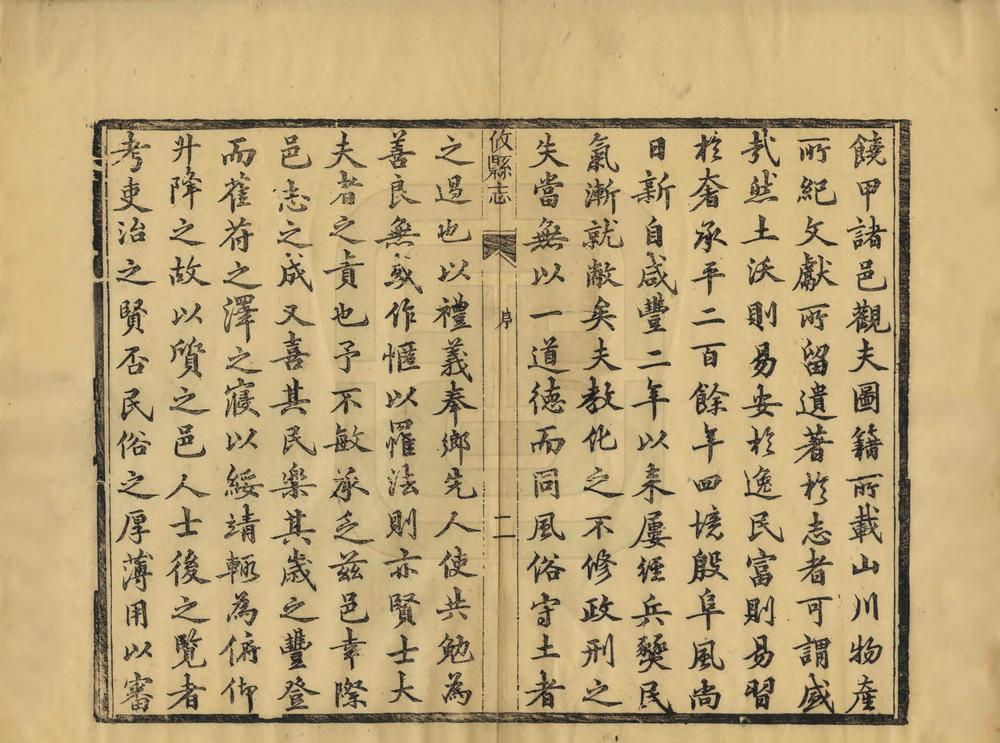 饒甲諸邑觀夫圖籍所載山川物產
所紀文獻所留遺著於志者可謂盛
哉然土沃則易安於逸民富則易習
於奢承平二百餘年四境殷阜風尚
日新自咸豐二年以来屢經兵燹民
氣漸就敝矣夫教化之不修政刑之
失當無以一道德而同風俗守土者
攸縣志
序
二
之過也以禮義奉鄉先人使共勉為
善良無或作慝以罹法則亦賢士大
夫者之責也予不敏承乏茲邑幸際
邑志之成又喜其民樂其歲之豐登
而萑苻之澤之寖以綏靖輙為俯仰
升降之故以質之邑人士後之覽者
考吏治之賢否民俗之厚薄用以審